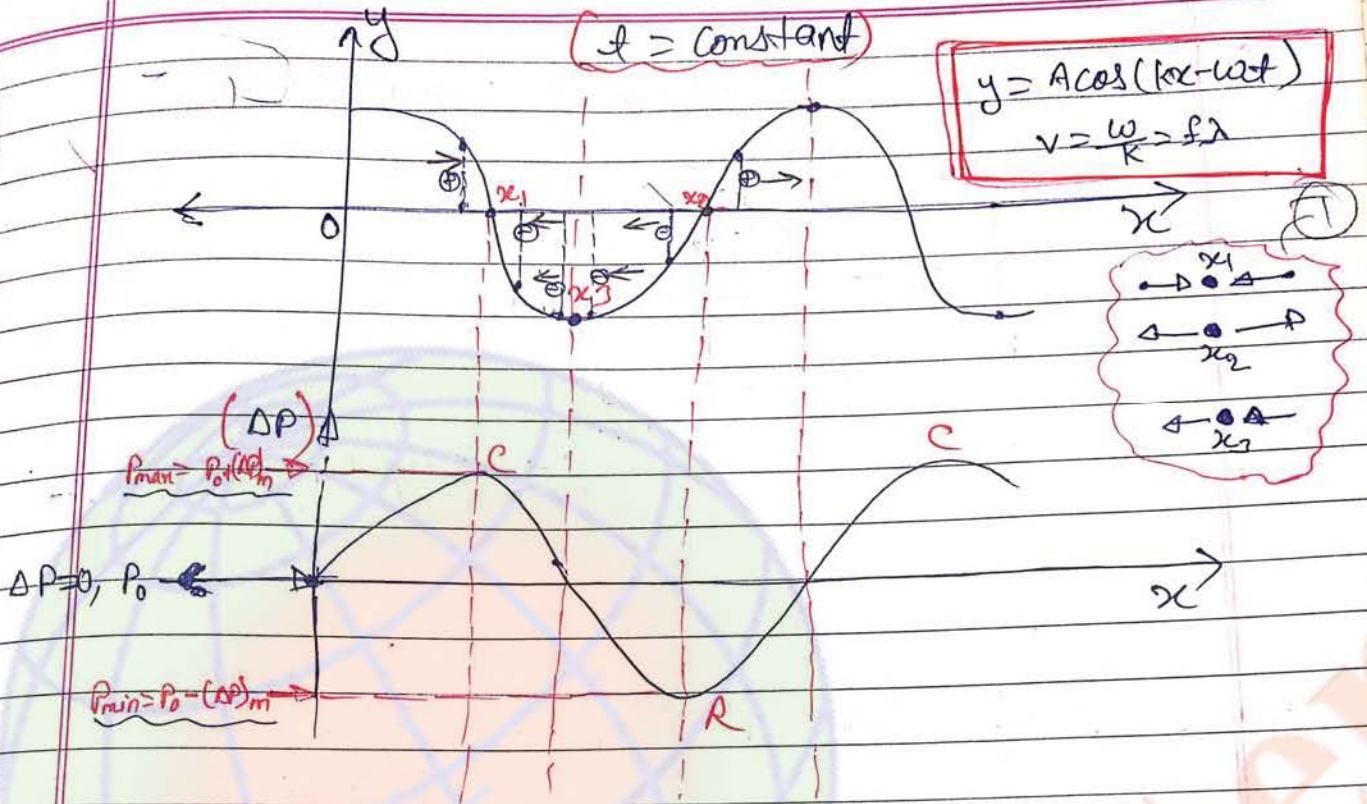 y
(t = constant)
y = A cos(kx-ωt)
v = ω/k = fλ
⊕
x1
x2
⊕
0
⊖
⊖
x
⊖
x3
⊖
x1
x2
x3
(ΔP)
Pmax = P0+(ΔP)m
C
C
ΔP=0, P0
x
Pmin = P0-(ΔP)m
R